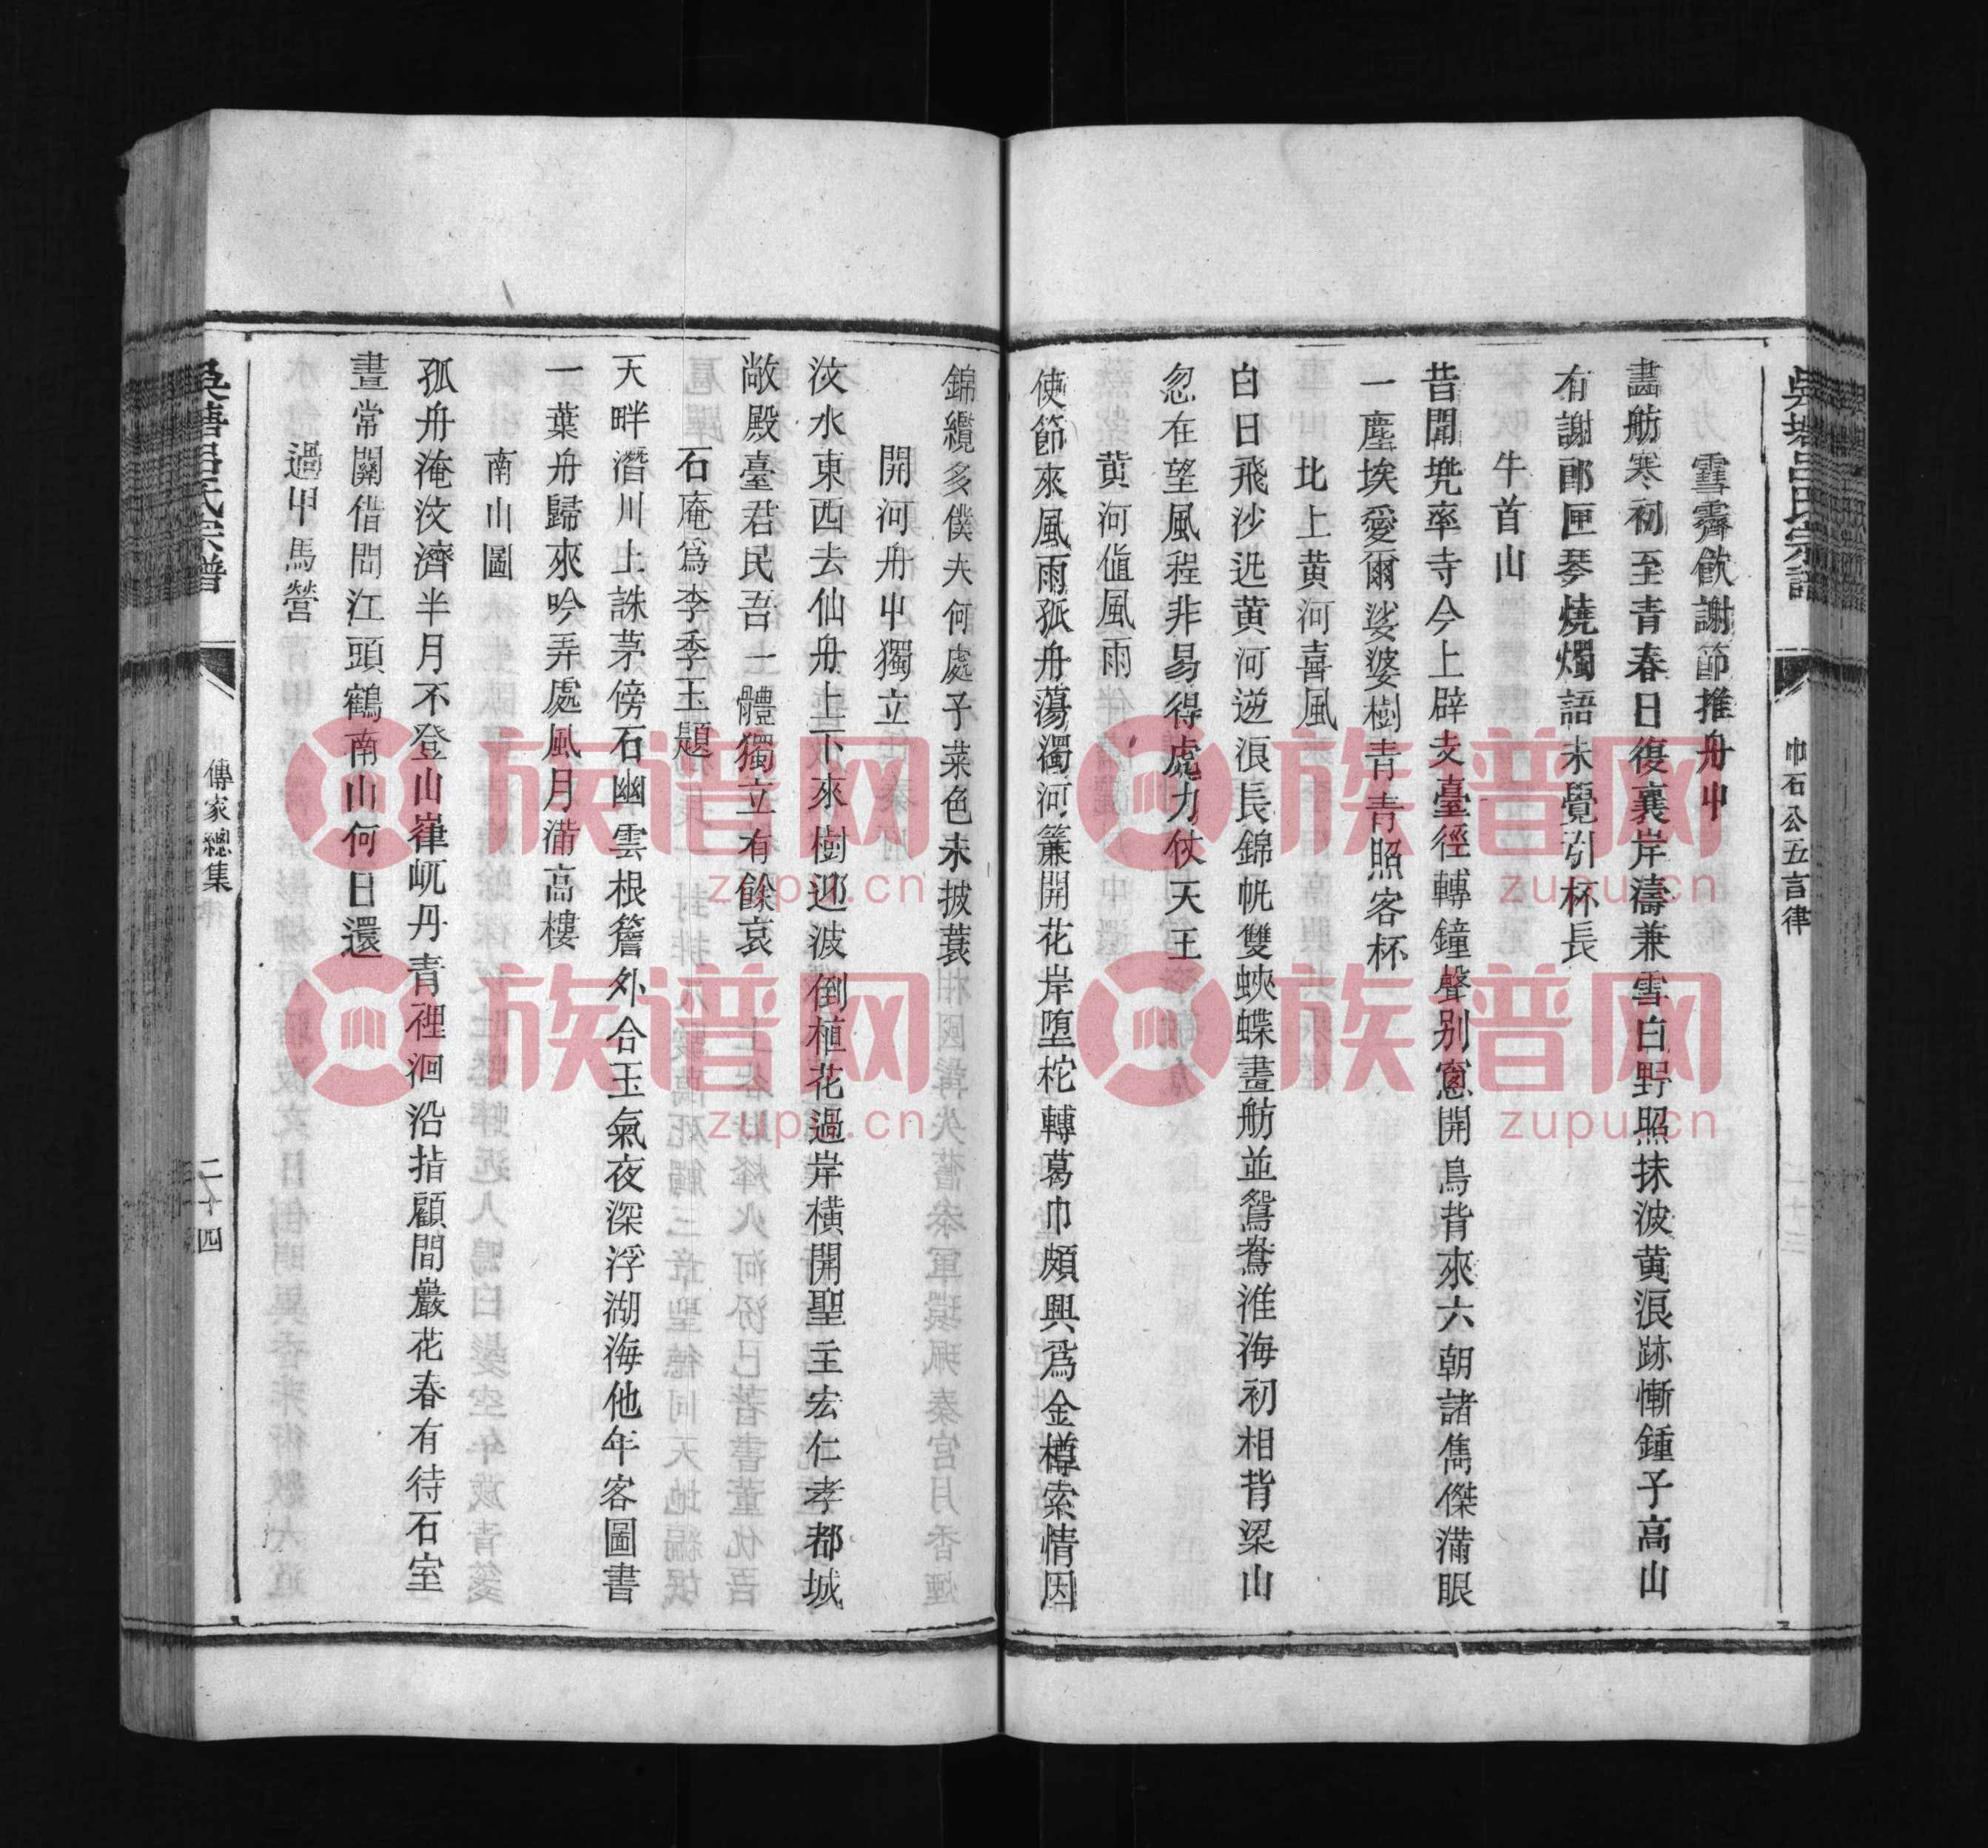 吳塘呂氏宗譜
巾石公五言律
雪霽飲謝節推舟中
畵舫寒初至青春日復襄岸濤兼雪白野照抹波黄浪跡慚鍾子高山
有謝郎匣琴燒燭語未覺引杯長
牛首山
昔聞兠率寺今上辟支臺徑轉鐘聲别窻開鳥背來六朝諸雋傑滿眼
一塵埃愛爾娑婆樹青青照客杯
北上黄河喜風
白日飛沙迅黄河逆浪長錦帆雙蛺蝶畫舫並鴛鴦淮海初相背梁山
忽在望風程非易得虎力仗天王
黄河值風雨
使節來風雨孤舟蕩濁河簾開花岸堕柁轉葛巾頗興爲金樽索情因
錦纜多僕夫何處子菜色未披蓑
開河舟中獨立
汶水東西去仙舟上下來樹迎波倒植花過岸橫開聖主宏仁孝都城
敞殿臺君民吾一體獨立有餘哀
石庵爲李季玉題
天畔潛川上誅茅傍石幽雲根簷外合玉氣夜深浮湖海他年客圖書
一葉舟歸來吟弄處風月滿高樓
南山圖
孤舟淹汶濟半月不登山嵂屼丹青裡洄沿指顧間巖花春有待石室
晝常關借問江頭鶴南山何日還
過甲馬營
吳塘呂氏宗譜
傳家總集
二十四
族谱网
zupu.cn
族谱网
zupu.cn
族谱网
zupu.cn
族谱网
zupu.cn